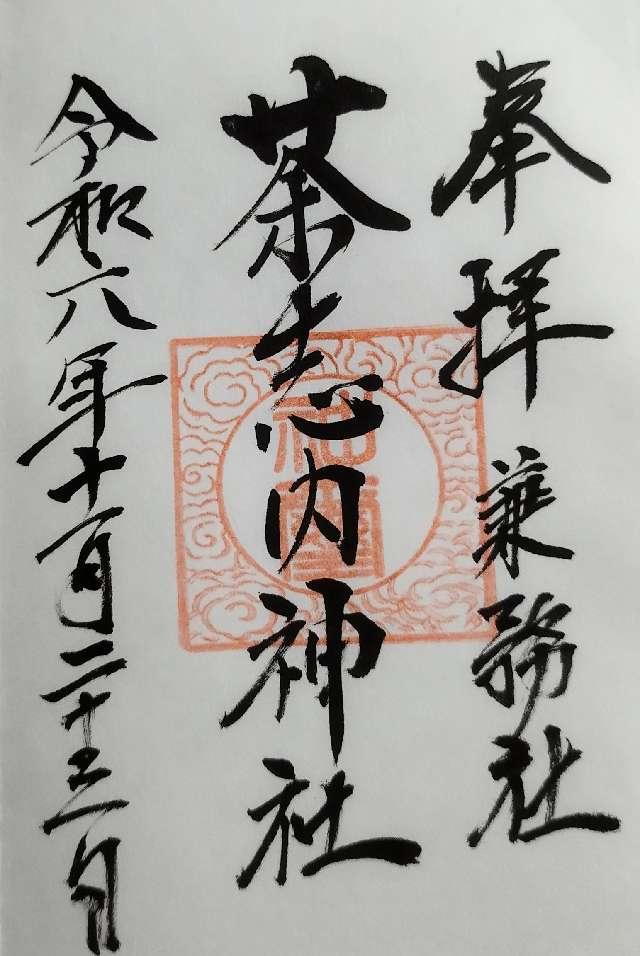 奉拝 兼務社
茶志内神社
令和六年十一月二十三日